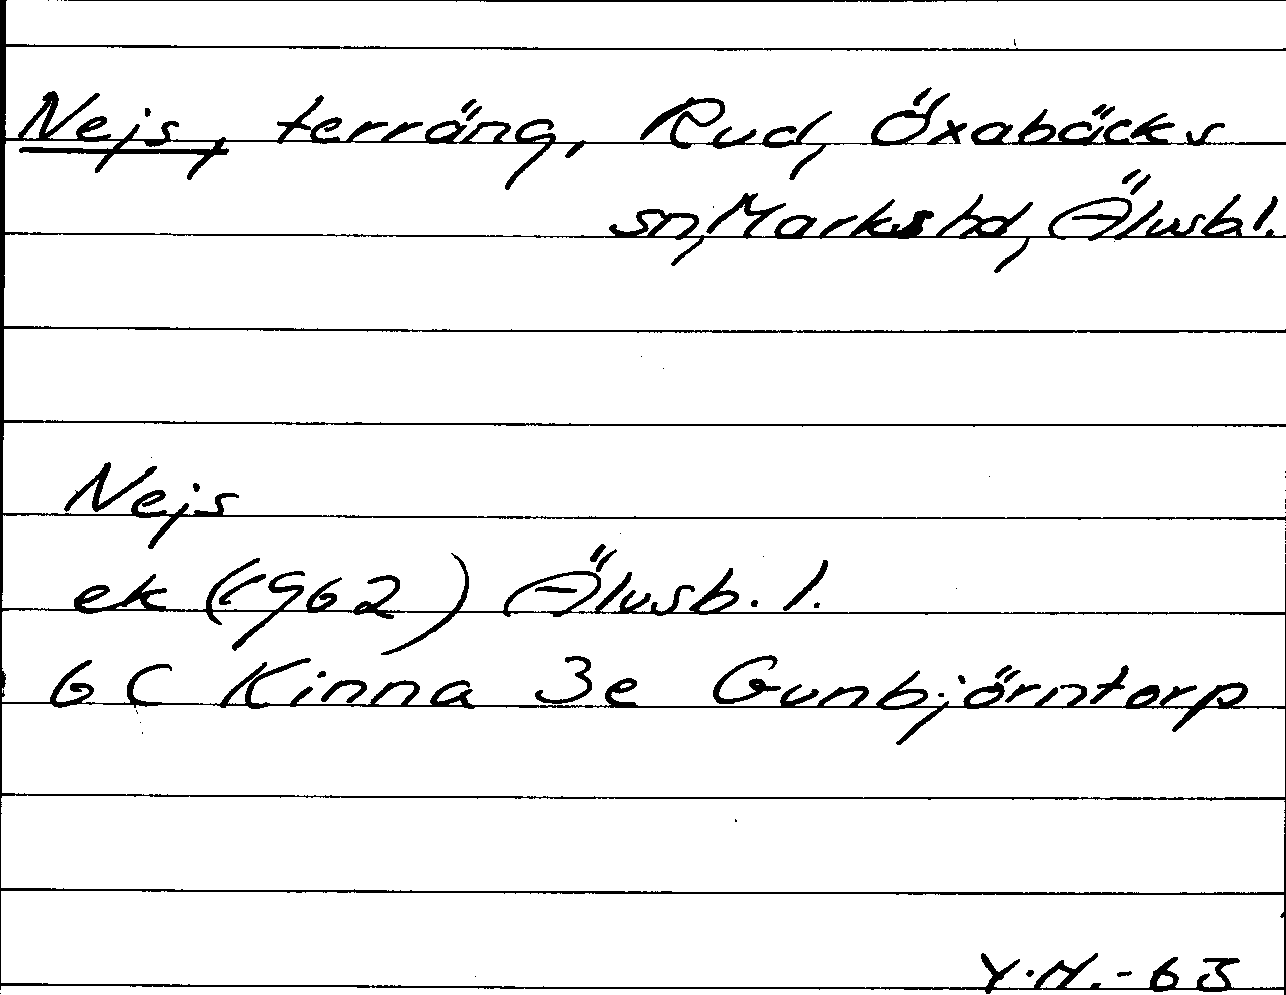 Nejs, terräng, Rud, Öxabäcks
sn, Marks hd, Älvsb.l.
Nejs
ek (1962) Älvsb. l.
6 C Kinna 3e Gunbjörntorp
Y.N.-63